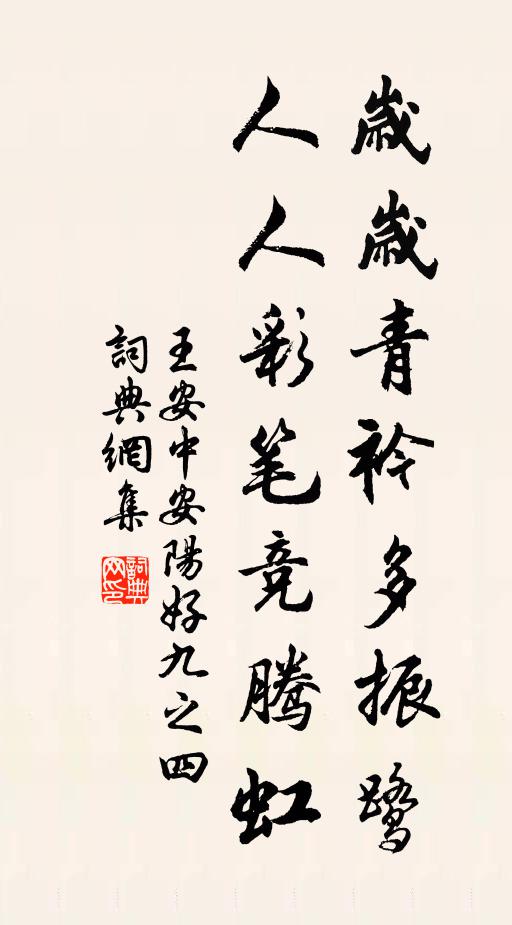 歲歲青衿多振鷺
人人彩笔竞腾虹
王安中安陽好九之四
詞典網集
詞典网印